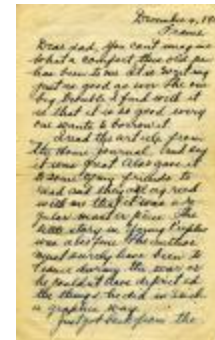 December 4, 19
France
Dear dad, You can't imagine
what a comfort this old pen
has been to me. It is writing
just as good as ever. The one
big trouble I find with it
is that it is so good every
one wants to borrow it.
I read the article from
the Home Journal. And say
it was great. Also gave it
to some of my friends to
read and they all agreed
with me that it was a re
gular master piece. The
little story in Young Peoples
was also fine. The author
must surely have been to
France during the war or
he couldn't have depicted
the things he did in such
a graphic way.
Just got back from the